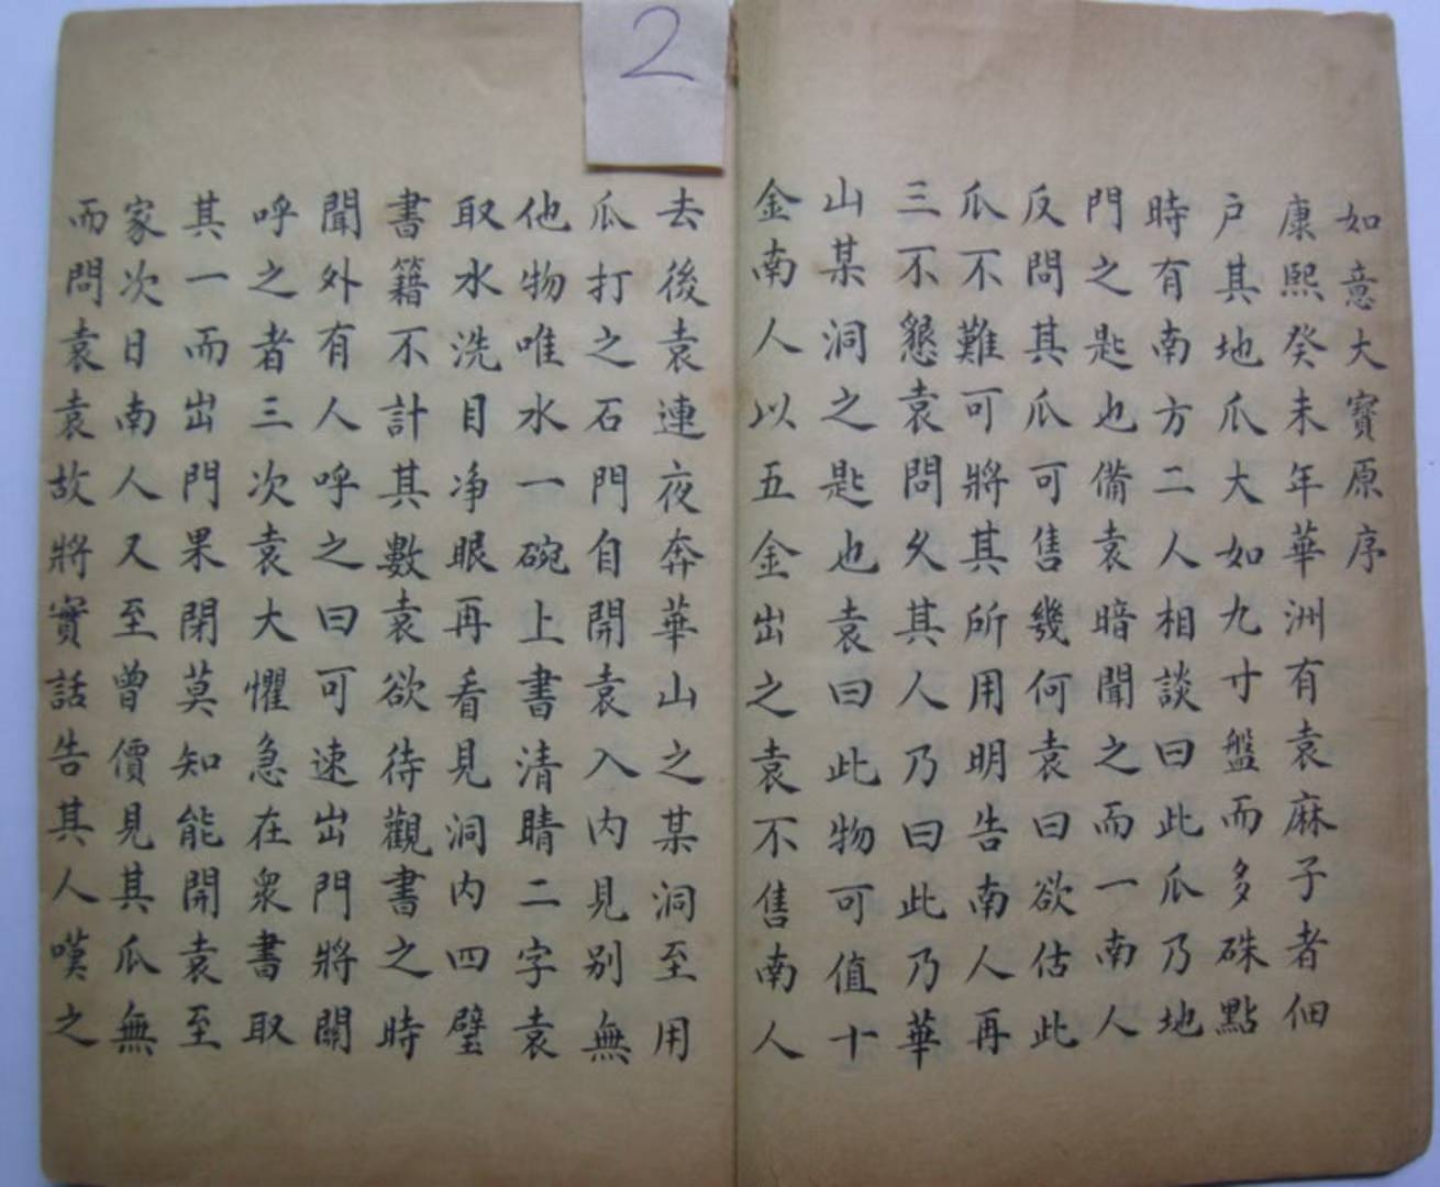 2
如意大寳原序
康熙癸未年華洲有袁麻子者佃
户其地瓜大如九寸盤而多硃點
時有南方二人相談曰此瓜乃地
門之匙也備袁暗聞之而一南人
反問其瓜可售幾何袁曰欲估此
瓜不難可將其所用明告南人再
三不懇袁問久其人乃曰此乃華
山某洞之匙也袁曰此物可值十
金南人以五金出之袁不售南人
去後袁連夜奔華山之某洞至用
瓜打之石門自開袁入内見别無
他物唯水一碗上書清睛二字袁
取水洗目净眼再看見洞内四壁
書籍不計其數袁欲待觀書之時
聞外有人呼之曰可速出門將關
呼之者三次袁大懼急在衆書取
其一而出門果閉莫知能開袁至
家次日南人又至曾價見其瓜無
而問袁袁故將實話告其人嘆之